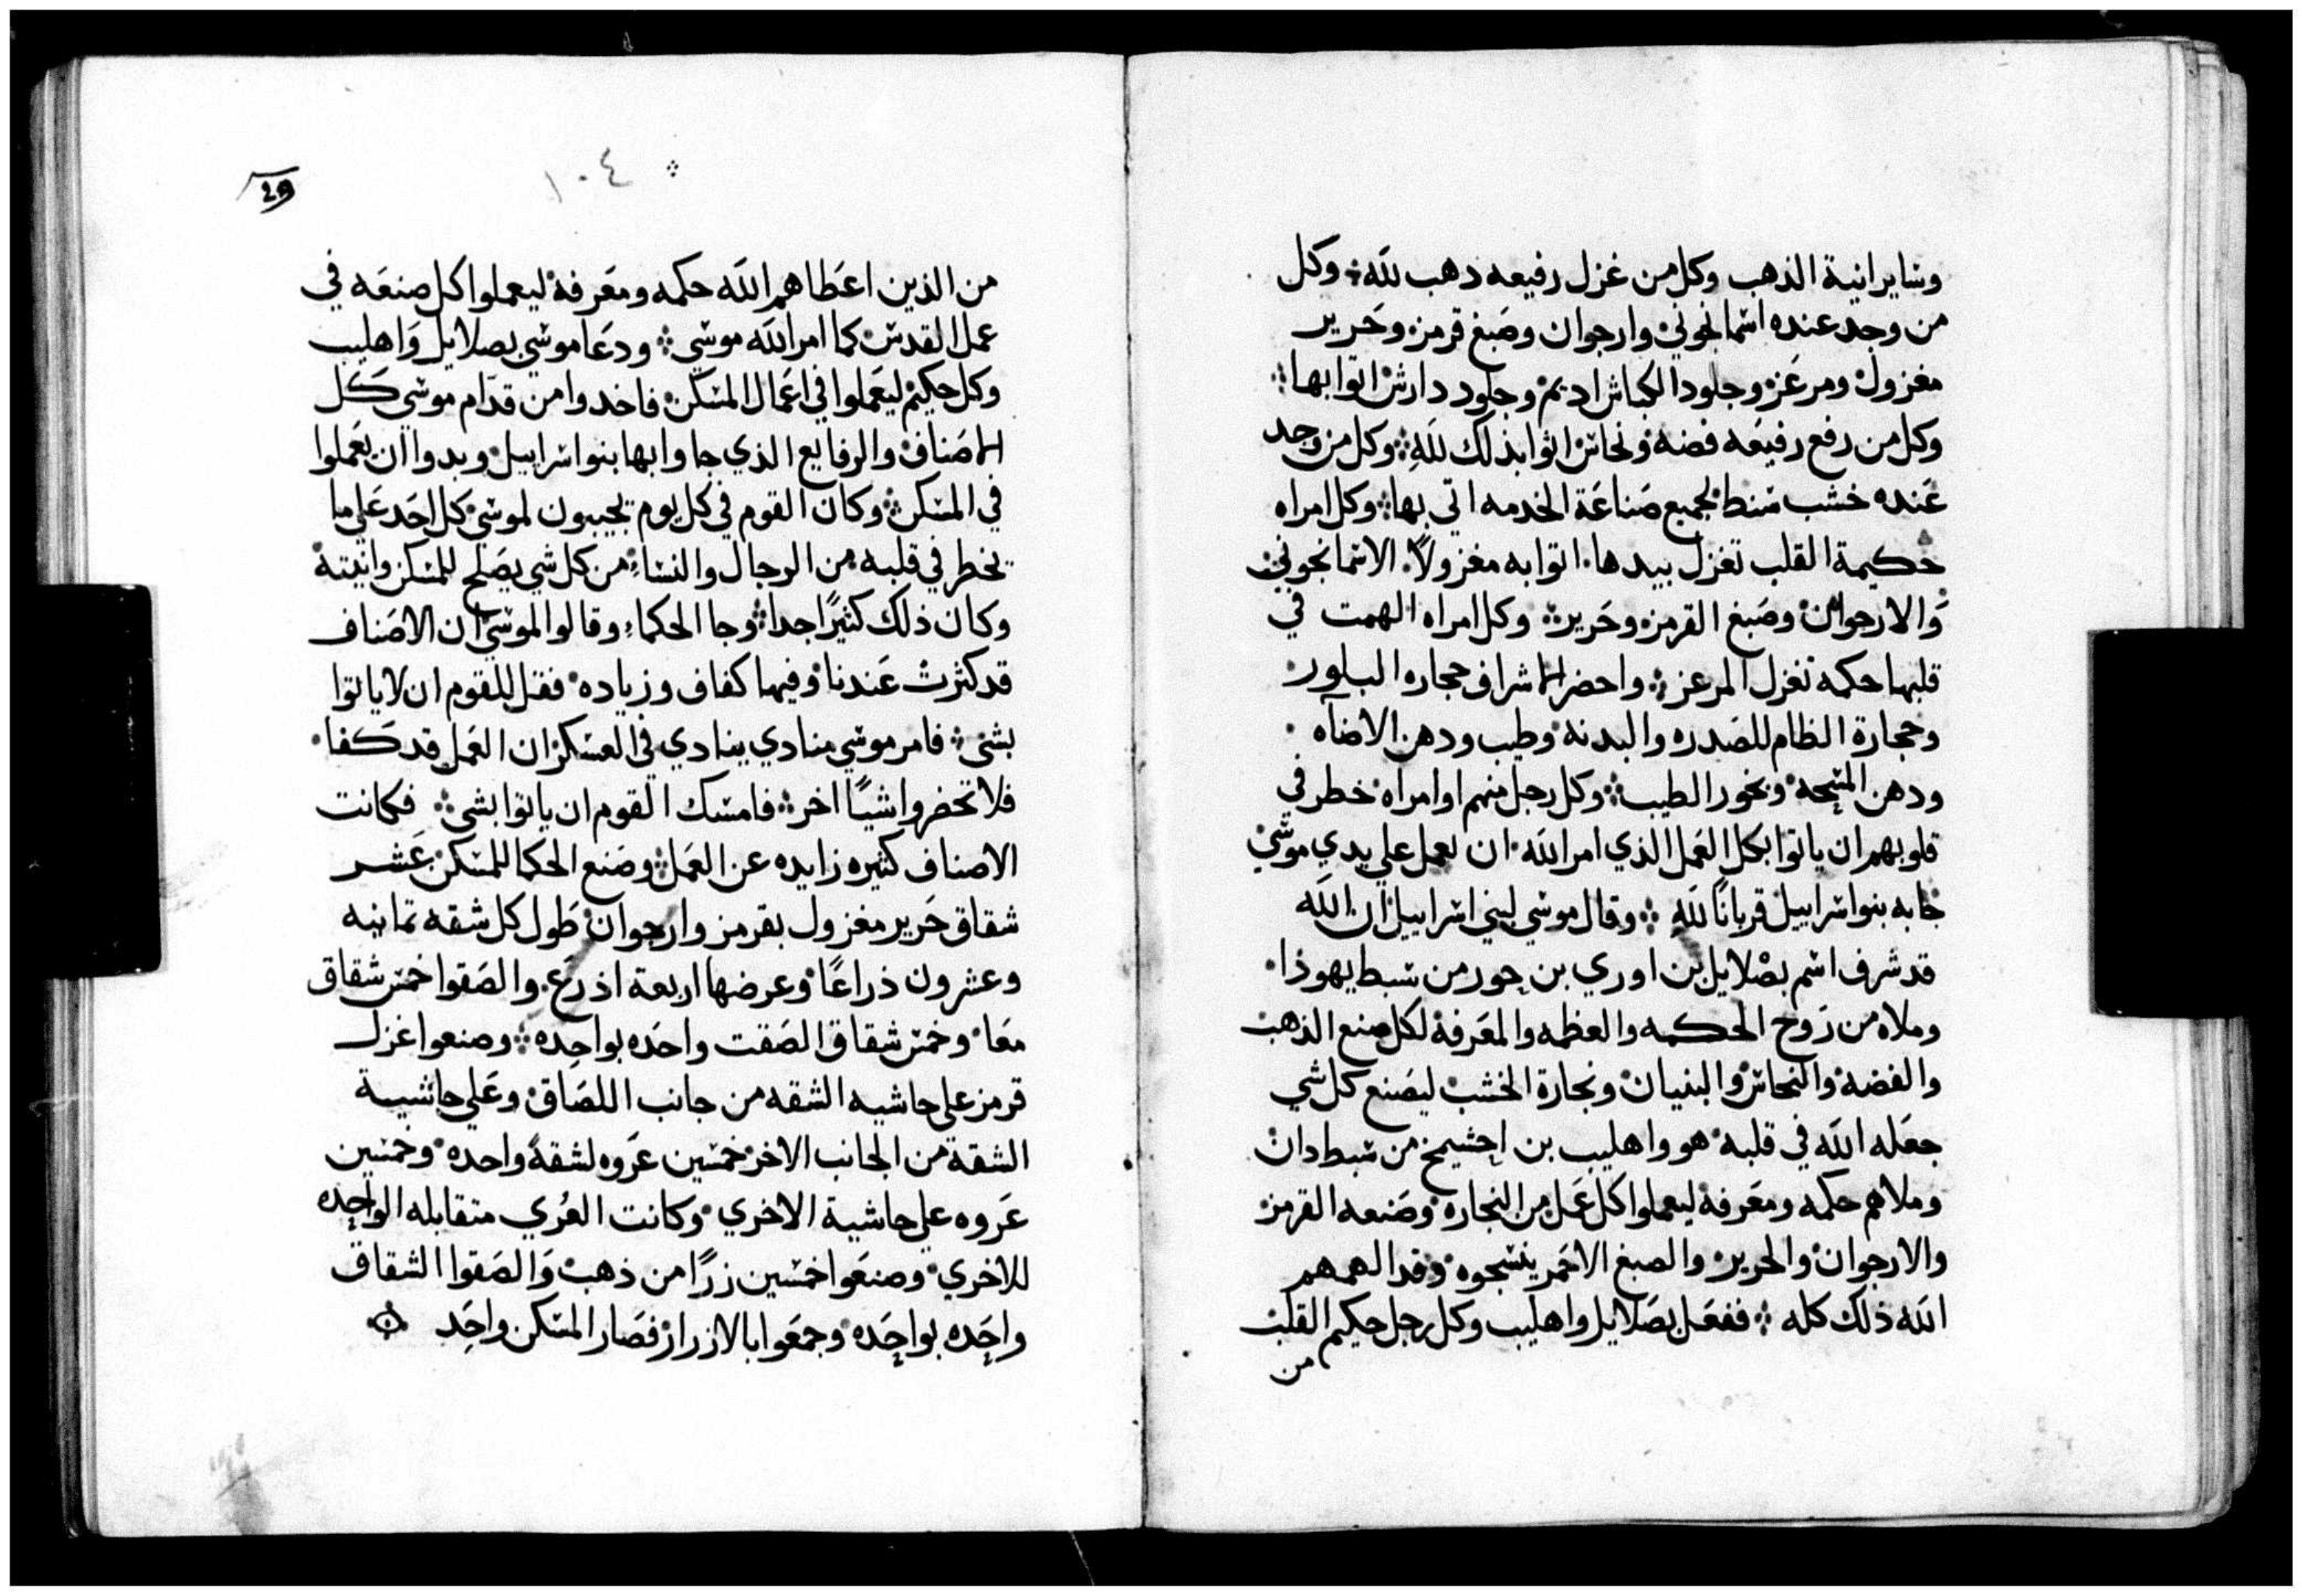 وسايرانية الذهب وكل من غزل رفيعه دهب لله ۞ وكل
من وجد عنده اسمانجوني وارجوان وصبغ قرمز وحرير
مغزول ومرعز وجلود الكباش اديم وجلود دارش اتوا بها
وكل من رفع رفيعه فضه ونحاس اتوا بذلك لله وكل من وجد
عنده خشب سنط لجميع صناعة الخدمه اتي بها وكل امراه
حكيمة القلب تغزل بيدها اتوا به مغزولاً الاسمانجوني
والارجوان وصبغ القرمز وحرير وكل امراه الهمت في
قلبها حكمه تغزل المرعز واحضر الاشراف حجاره البلور
وحجارة النظام للصدره والبدنه وطيب ودهن الاضآه
ودهن المسحه وبخور الطيب وكل رجل منهم اوامراه خطر في
قلوبهم ان ياتوا بكل العمل الذي امر الله ان يعمل علي يدي موسي
جابه بنواسراييل قرباناً لله وقال موسي لبني اسراييل ان الله
قد شرف اسم بصلايل بن اوري بن حور من سبط يهوذا
وملاه من روح الحكمه والعظمه والمعرفة لكل صنع الذهب
والفضه والنحاس والبنيان ونجارة الخشب ليصنع كل شي
جعله الله في قلبه هو واهليب بن احشيمخ من سبط دان
وملاهم حكمه ومعرفة ليعملوا كل عمل من النجاره وصنعه القرمز
والارجوان والحرير والصبغ الاحمر ينسجوه وقد الهمهم
الله ذلك كله ففعل بصلايل واهليب وكل رجل حكيم القلب
من
١٠٤
من الذين اعطاهم الله حكمه ومعرفة ليعملوا كل صنعه في
عمل القدس كما امر الله موسي ودعا موسي بصلايل واهليب
وكل حكيم ليعملوا في اعمال المسكن فاخدوا من قدام موسي كل
الاصناف والرفايع الذي جاوا بها بنواسراييل وبدوا ان يعملوا
في المسكن وكان القوم في كل يوم يجيبون لموسي كل احد علي ما
يخطر في قلبه من الرجال والنساء من كل شي يصلح للمسكن وانيته
وكان ذلك كثيرًا جدا وجا الحكماء وقالوا لموسي ان الاصناف
قد كثرت عندنا وفيها كفاف وزياده فقل للقوم ان لاياتوا
بشي فامر موسي منادي ينادي في العسكر ان العمل قد كفا
فلا تحضروا شيًا اخر فامسك القوم ان ياتوا بشي فكانت
الاصناف كثيره زايده عن العمل وصنع الحكما للمسكن عشر
شقاق حرير مغزول بقرمز وارجوان طول كل شقه تمانيه
وعشرون ذراعًا وعرضها اربعة اذرع والصقوا خمس شقاق
معا وخمس شقاق الصقت واحده بواحده وصنعوا غزل
قرمز علي حاشيه الشقه من جانب اللصاق وعلي حاشية
الشقة من الجانب الاخر خمسين عروه لشقة واحده وخمسين
عروه علي حاشية الاخري وكانت العري متقابله الواحده
للاخري وصنعوا خمسين زرًا من ذهب والصقوا الشقاق
واحده بواحده وجمعوا بالازرار فصار المسكن واحد